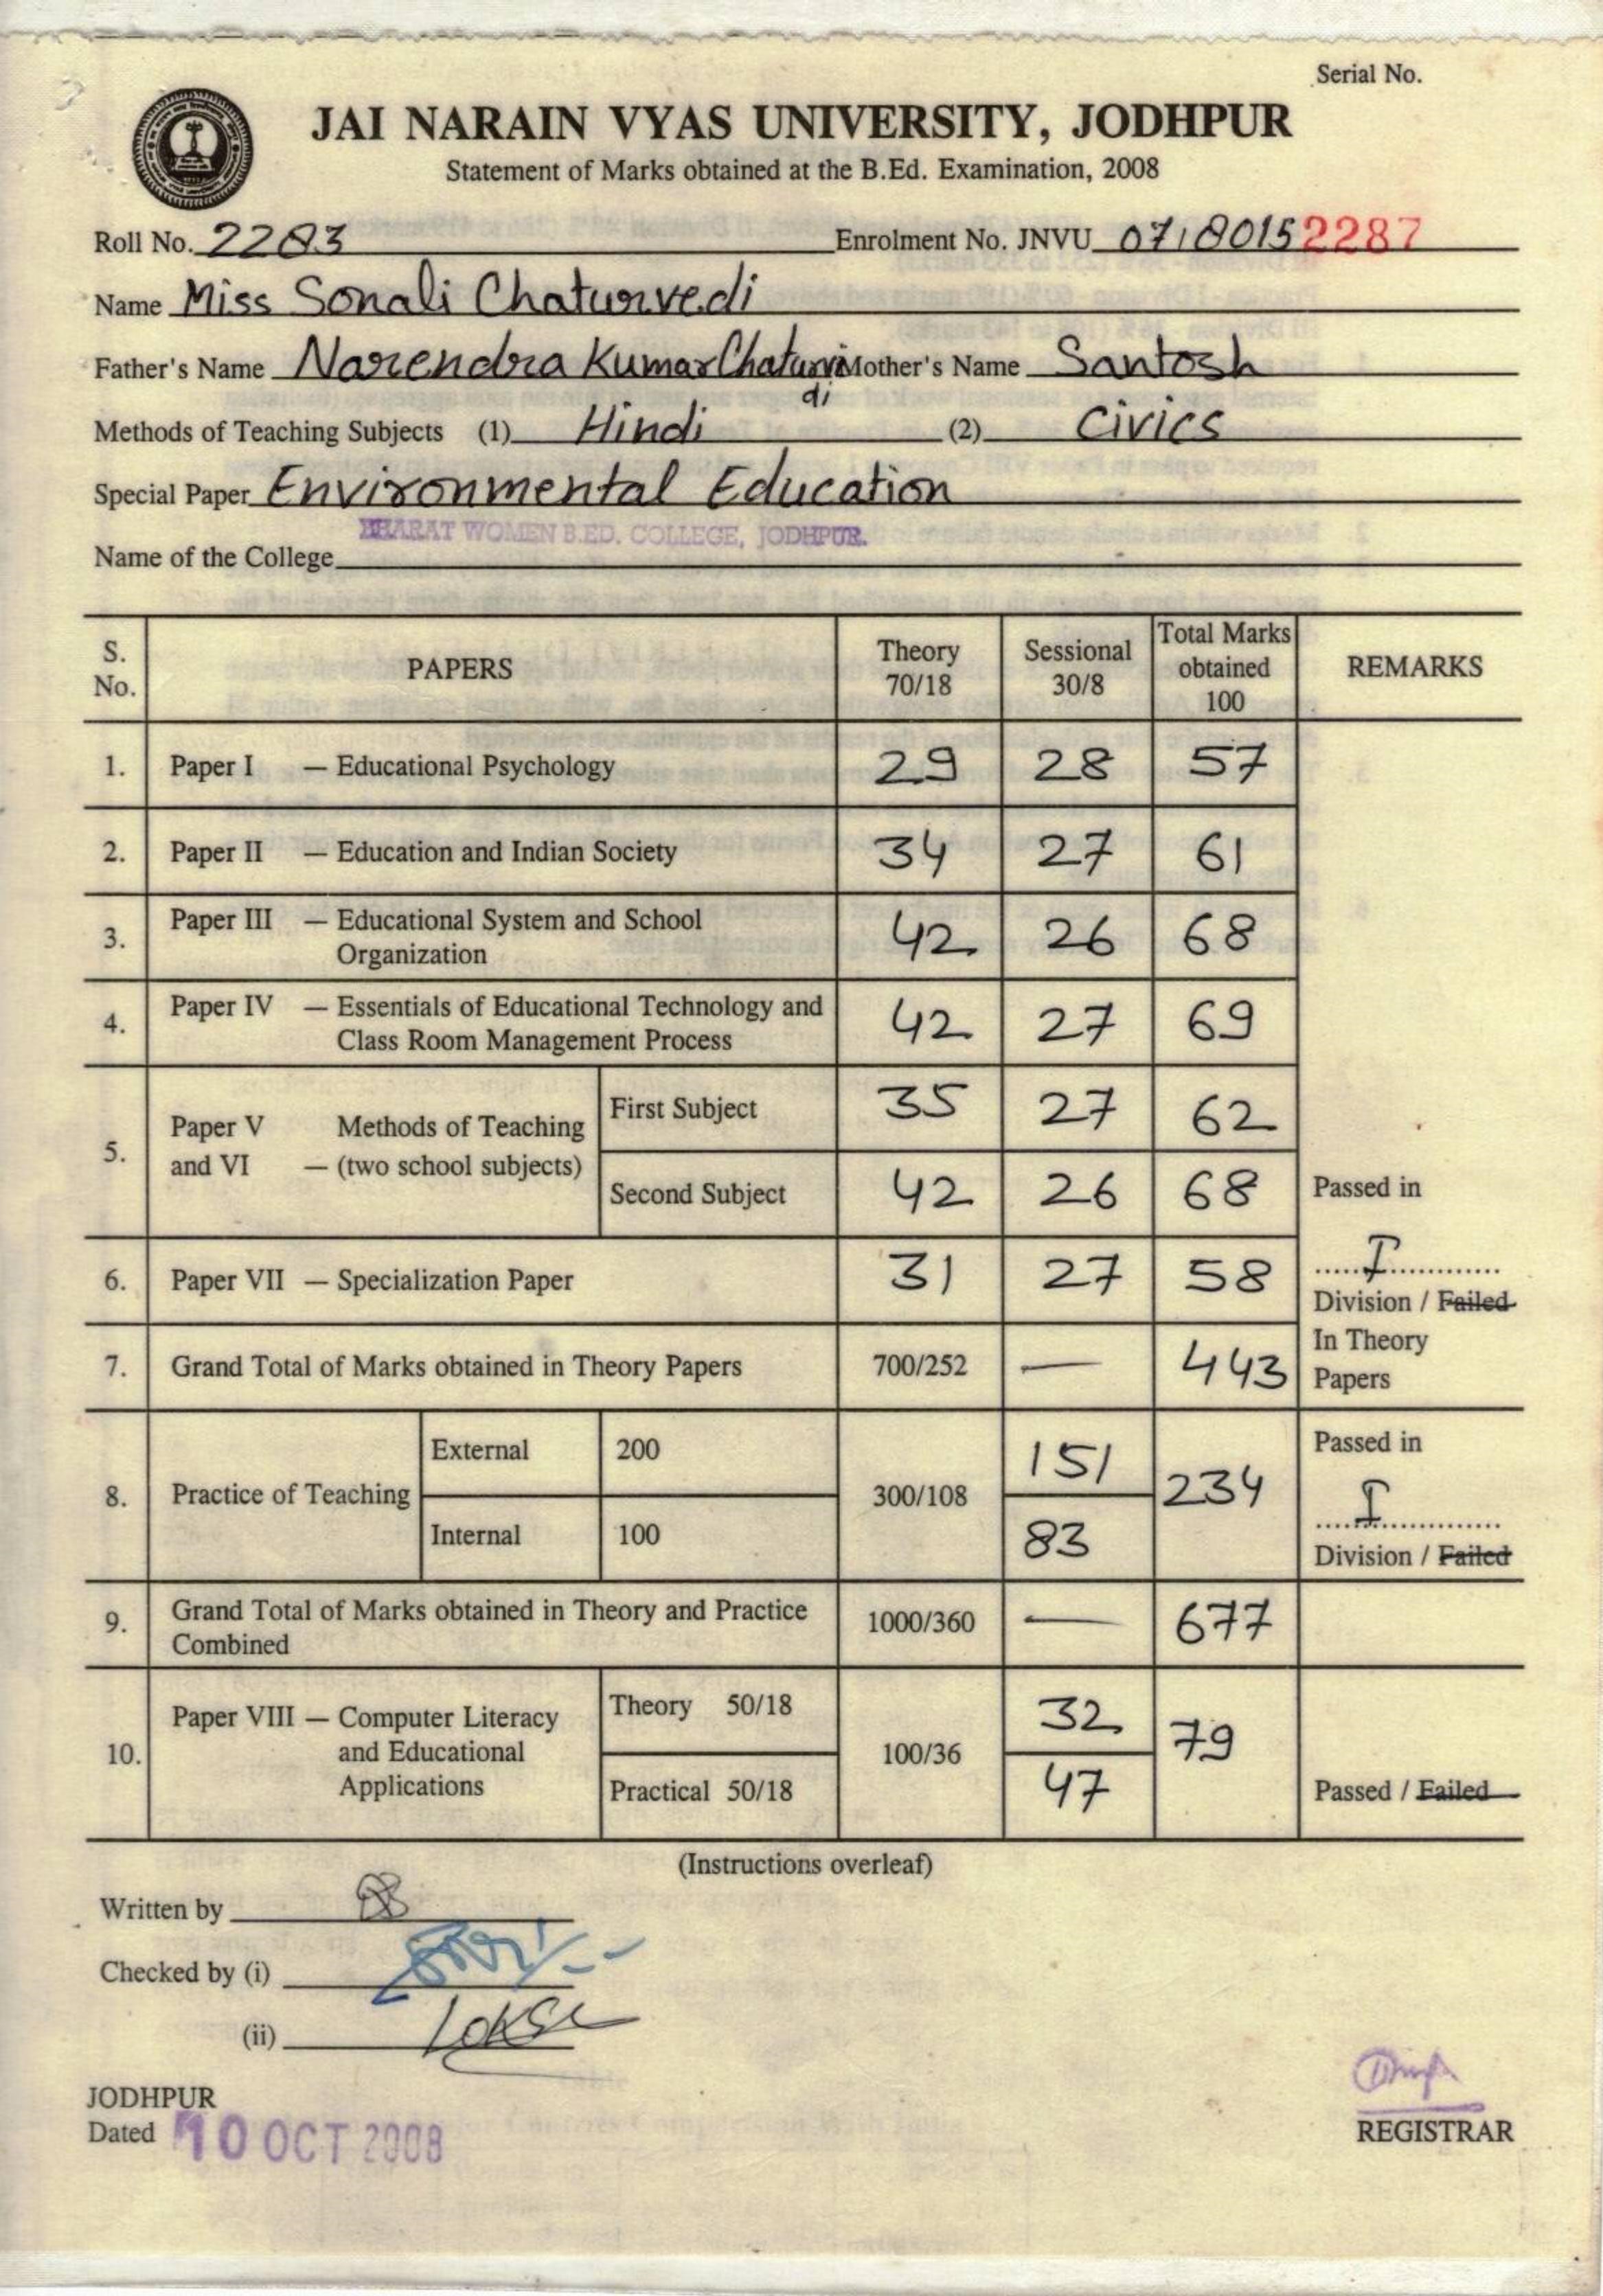 Serial No.
JAI NARAIN VYAS UNIVERSITY, JODHPUR
Statement of Marks obtained at the B.Ed. Examination, 2008
Roll No. Enrolment No. JNVU 2287
Name Miss Sonali Chaturvedi
Father's Name Narendra Kumar Mother's Name Santosh
di
Methods of Teaching Subjects (1) Hindi (2) Civics
Special Paper Environmental Education
BHARAT WOMEN B.ED. COLLEGE, JODHPUR.
Name of the College
S. No. PAPERS Theory 70/18 Sessional 30/8 Total Marks obtained 100 REMARKS
1. Paper I — Educational Psychology 29 28 57
2. Paper II — Education and Indian Society 34 27 61
3. Paper III — Educational System and School Organization 42 26 68
4. Paper IV — Essentials of Educational Technology and Class Room Management Process 42 27 69
5. Paper V and VI — Methods of Teaching (two school subjects) First Subject 35 27 62
Second Subject 42 26 68
6. Paper VII — Specialization Paper 31 27 58
7. Grand Total of Marks obtained in Theory Papers 700/252 — 443
Passed in
I
Division / Failed
In Theory
Papers
8. Practice of Teaching External 200 300/108 151 234
Internal 100 83
Passed in
I
Division / Failed
9. Grand Total of Marks obtained in Theory and Practice Combined 1000/360 — 677
10. Paper VIII — Computer Literacy and Educational Applications Theory 50/18 100/36 32 79
Practical 50/18 47 Passed / Failed
(Instructions overleaf)
Written by
Checked by (i)
(ii)
JODHPUR
Dated 10 OCT 2008
REGISTRAR